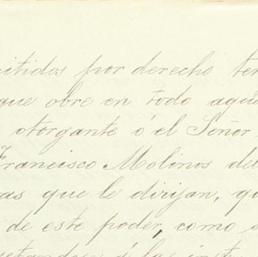 mitidos por derecho ter
que obre en todo aque
otorgante ó el Señor
Francisco Molinos del
as que le dirijan, qu
de este poder, como a